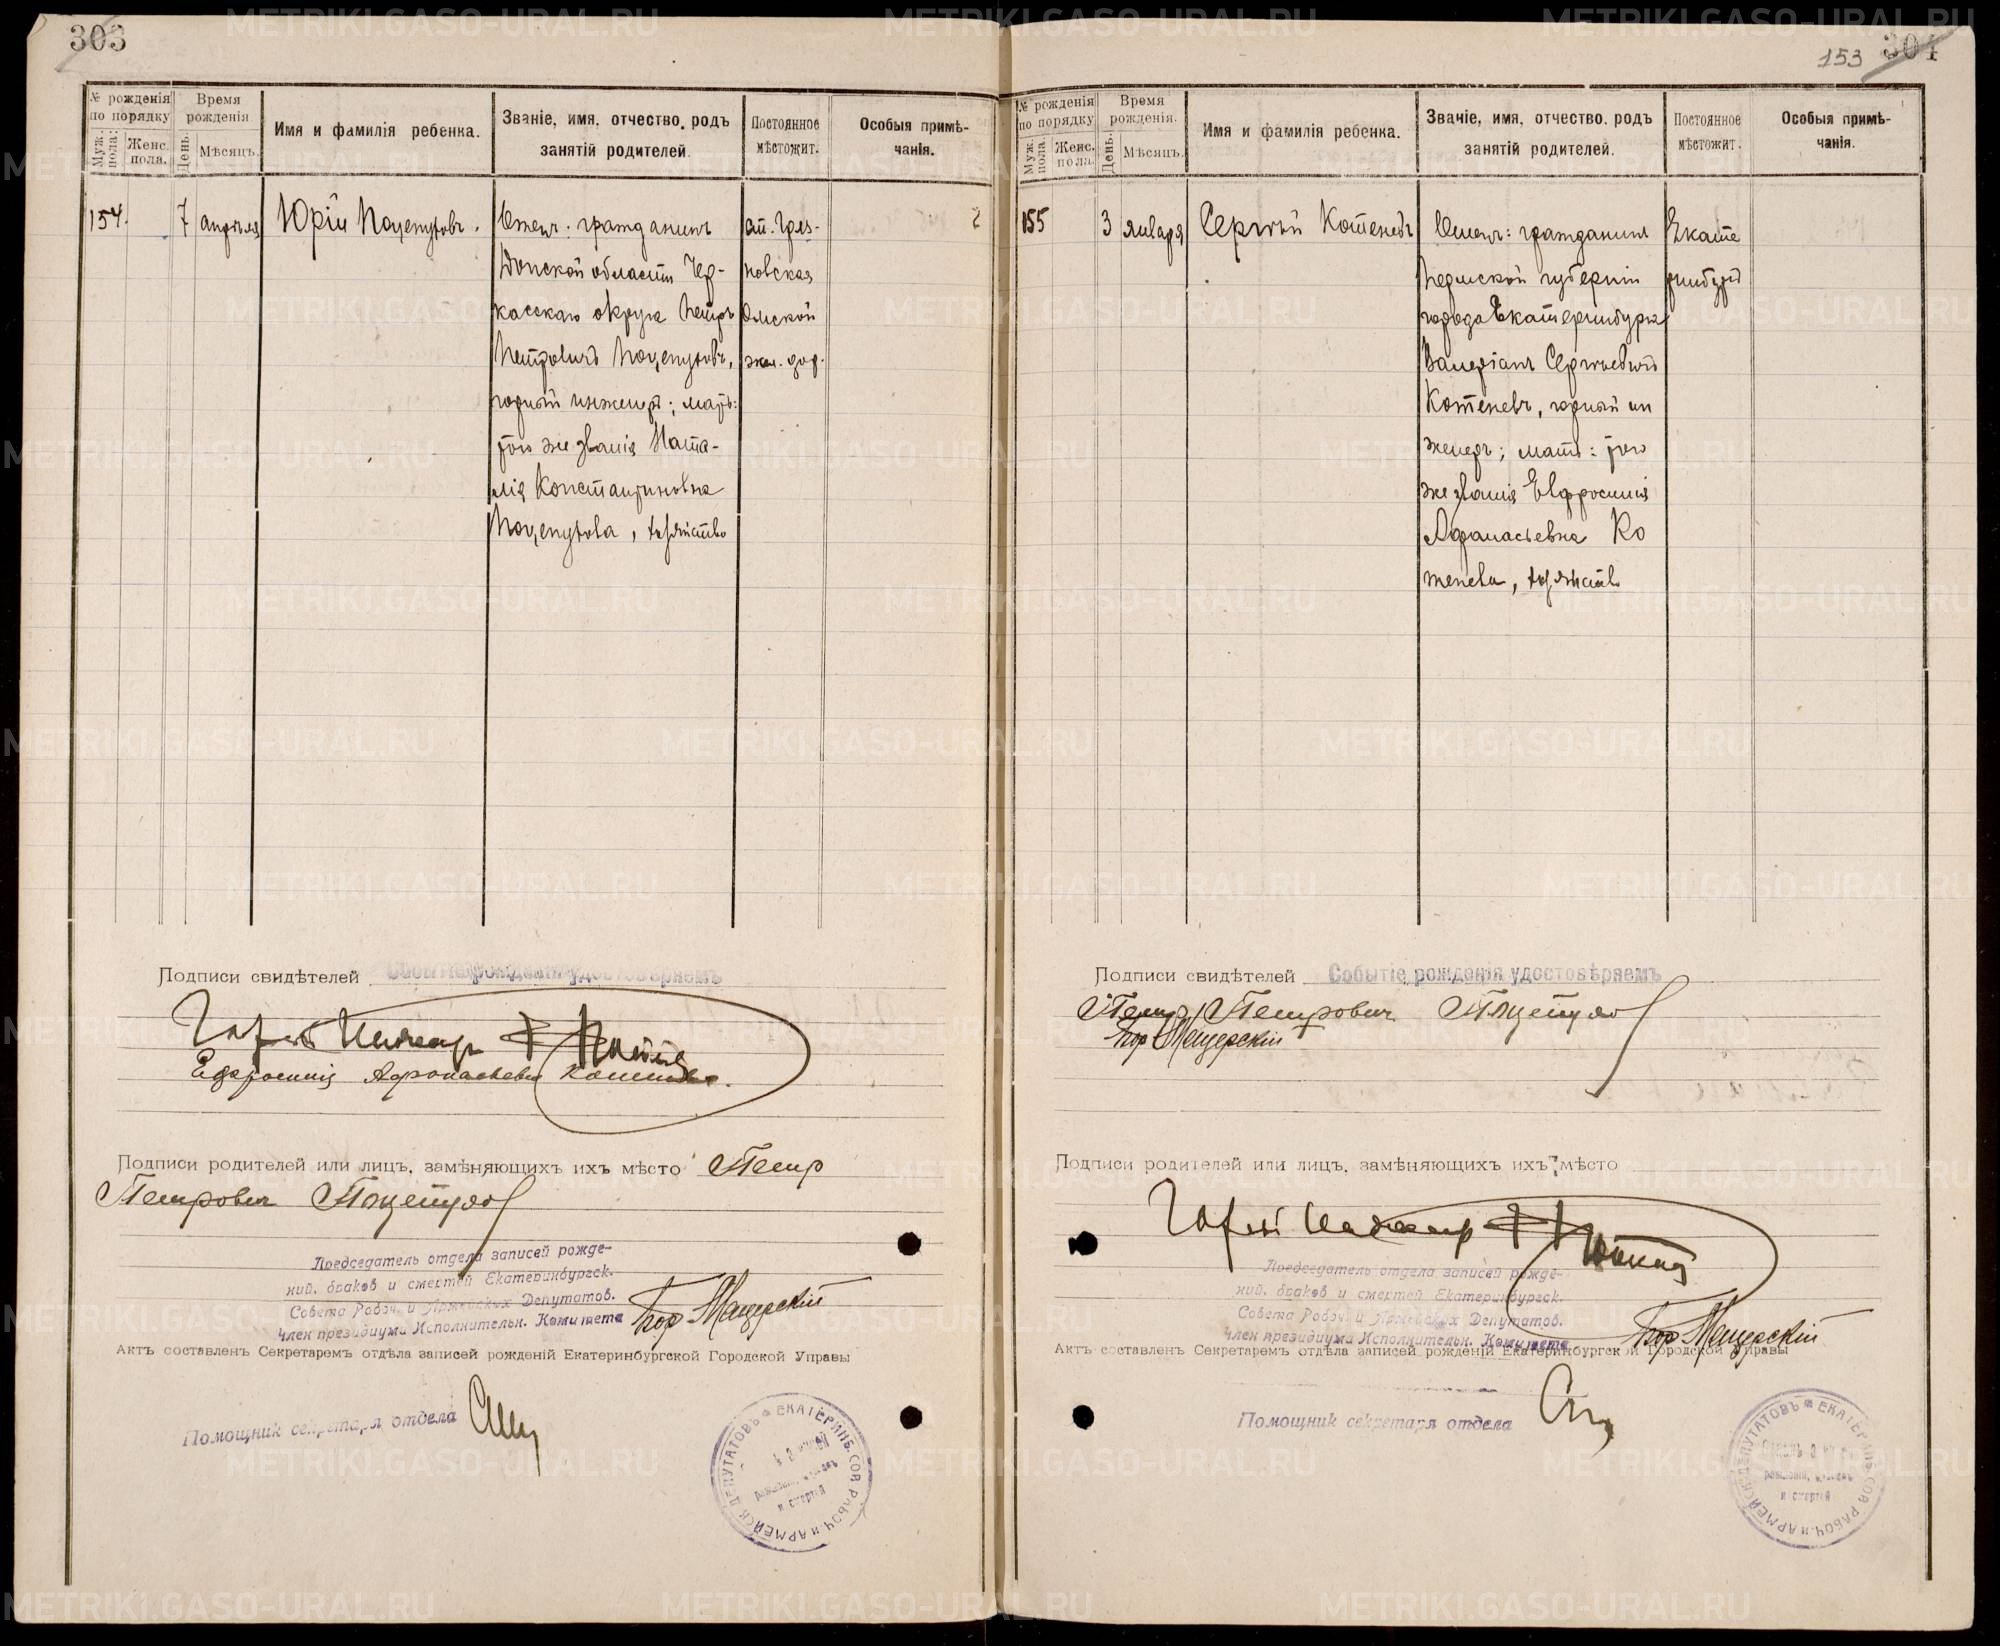 303
№ рожденія по порядку
Муж. пола.
Женс. пола.
Время рожденія
День.
Мѣсяцъ.
Имя и фамилія ребенка.
Званіе, имя, отчество, родъ
занятій родителей.
Постоянное
мѣстожит.
Особыя примѣ-
чанія.
154.
7
апрѣля
Юрій Поцепуховъ.
Отец: гражданинъ
Донской области Чер-
касскаго округа Петръ
Петровичъ
горный инженеръ; мать:
того же званія Ната-
лія Константиновна
ст.
новская
Омской
жел. дор.
2
Подписи свидѣтелей
Событіе рожденія удостовѣряемъ
Горный Инженер
Афонасьевна
Подписи родителей или лицъ, замѣняющихъ ихъ мѣсто Петр
Петрович
Председатель отдела записей рожде-
ний, браков и смертей Екатеринбургск.
Совета Рабоч. и Армейских Депутатов.
Член президиума Исполнительн. Комитета
Мещерскій
Актъ составленъ Секретаремъ отдѣла записей рожденій Екатеринбургской Городской Управы
Помощник секретаря отдела
ЕКАТЕРИНБ. СОВ. РАБОЧ. и АРМЕЙСК. ДЕПУТАТОВЪ
и смертей
153 304
№ рожденія по порядку
Муж. пола
Женс. пола.
Время рожденія.
День.
Мѣсяцъ.
Имя и фамилія ребенка.
Званіе, имя, отчество, родъ
занятій родителей.
Постоянное
мѣстожит.
Особыя примѣ-
чанія.
155
3
января
Сергѣй Котеневъ
Отецъ: гражданинъ
Пермской губерніи
города Екатеринбурга
Валеріанъ Сергѣевичъ
Котеневъ, горный ин
женеръ; мать: того
же званія Евфросинія
Афанасьевна Ко
тенева,
Екате
ринбургъ
Подписи свидѣтелей
Событіе рожденія удостовѣряемъ
Петр Петрович
Мещерскій
Подписи родителей или лицъ, замѣняющихъ ихъ мѣсто
Горный Инженер
Председатель отдела записей рожде-
ний, браков и смертей Екатеринбургск.
Совета Рабоч. и Армейских Депутатов.
Член президиума Исполнительн. Комитета
Мещерскій
Актъ составленъ Секретаремъ отдѣла записей рожденій Екатеринбургской Городской Управы
Помощник секретаря отдела
ЕКАТЕРИНБ. СОВ. РАБОЧ. и АРМЕЙСК. ДЕПУТАТОВЪ
и смертей
METRIKI.GASO-URAL.RU